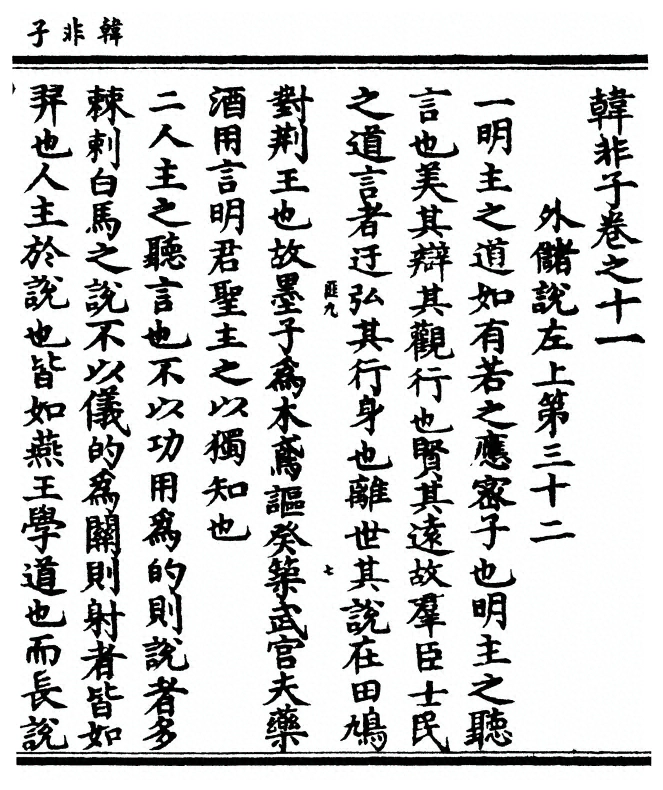 韓非子
韓非子卷之十一
外儲說左上第三十二
一明主之道如有若之應密子也明主之聽
言也美其辯其觀行也賢其遠故羣臣士民
之道言者迂弘其行身也離世其說在田鳩
對荆王也故墨子爲木鳶謳癸築武宮夫藥
酒用言明君聖主之以獨知也
二人主之聽言也不以功用爲的則說者多
棘刺白馬之說不以儀的爲關則射者皆如
羿也人主於說也皆如燕王學道也而長說